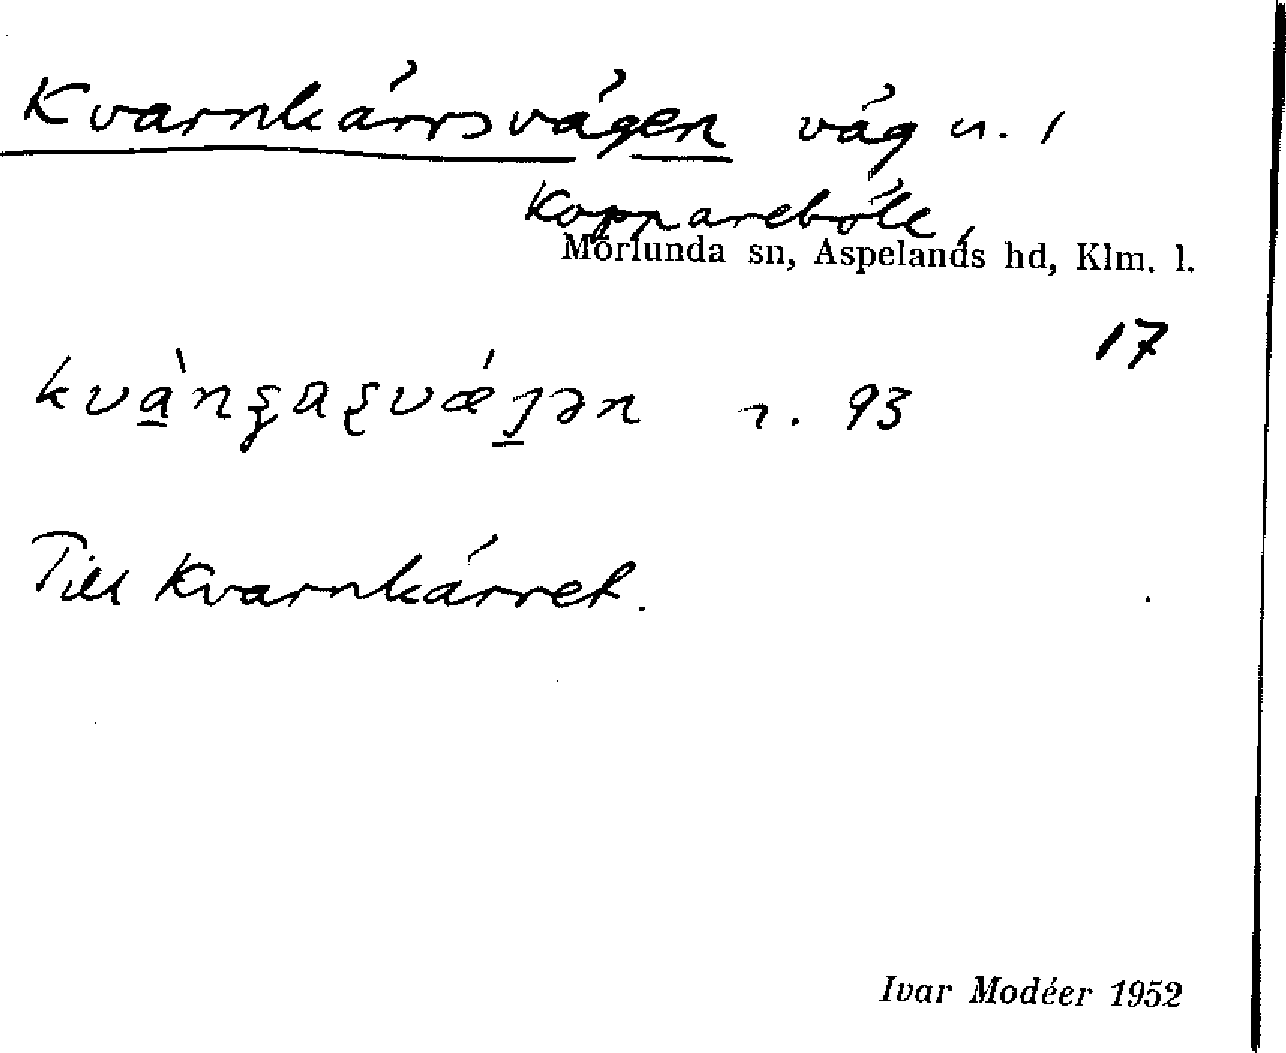 Kvarnkärrsvägen väg n. /
Koppareböle,
Mörlunda sn, Aspelands hd, Klm. l.
17
r. 93
Till Kvarnkärret.
Ivar Modéer 1952